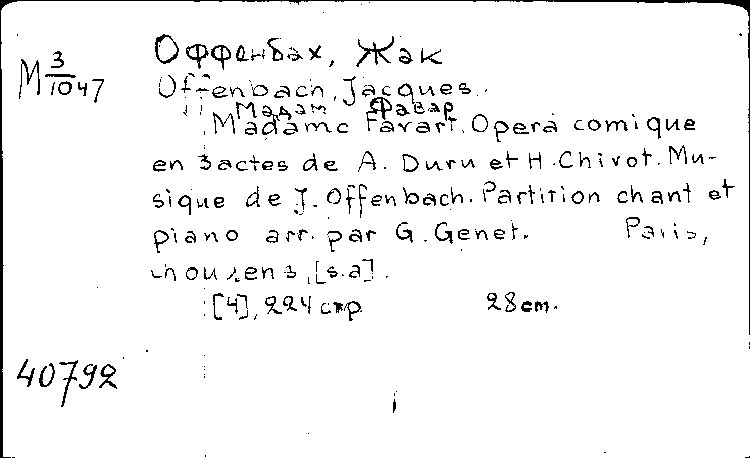 М 3/1047
Оффенбах, Жак
Offenbach, Jacques.
Мадам Фавар
Madame Favart. Opera comique
en 3 actes de A. Duru et H. Chivot. Mu-
sique de J. Offenbach. Partition chant et
piano arr. par G. Genet. Paris,
chousens, [s.a].
[4], 224 стр. 28 cm.
40792